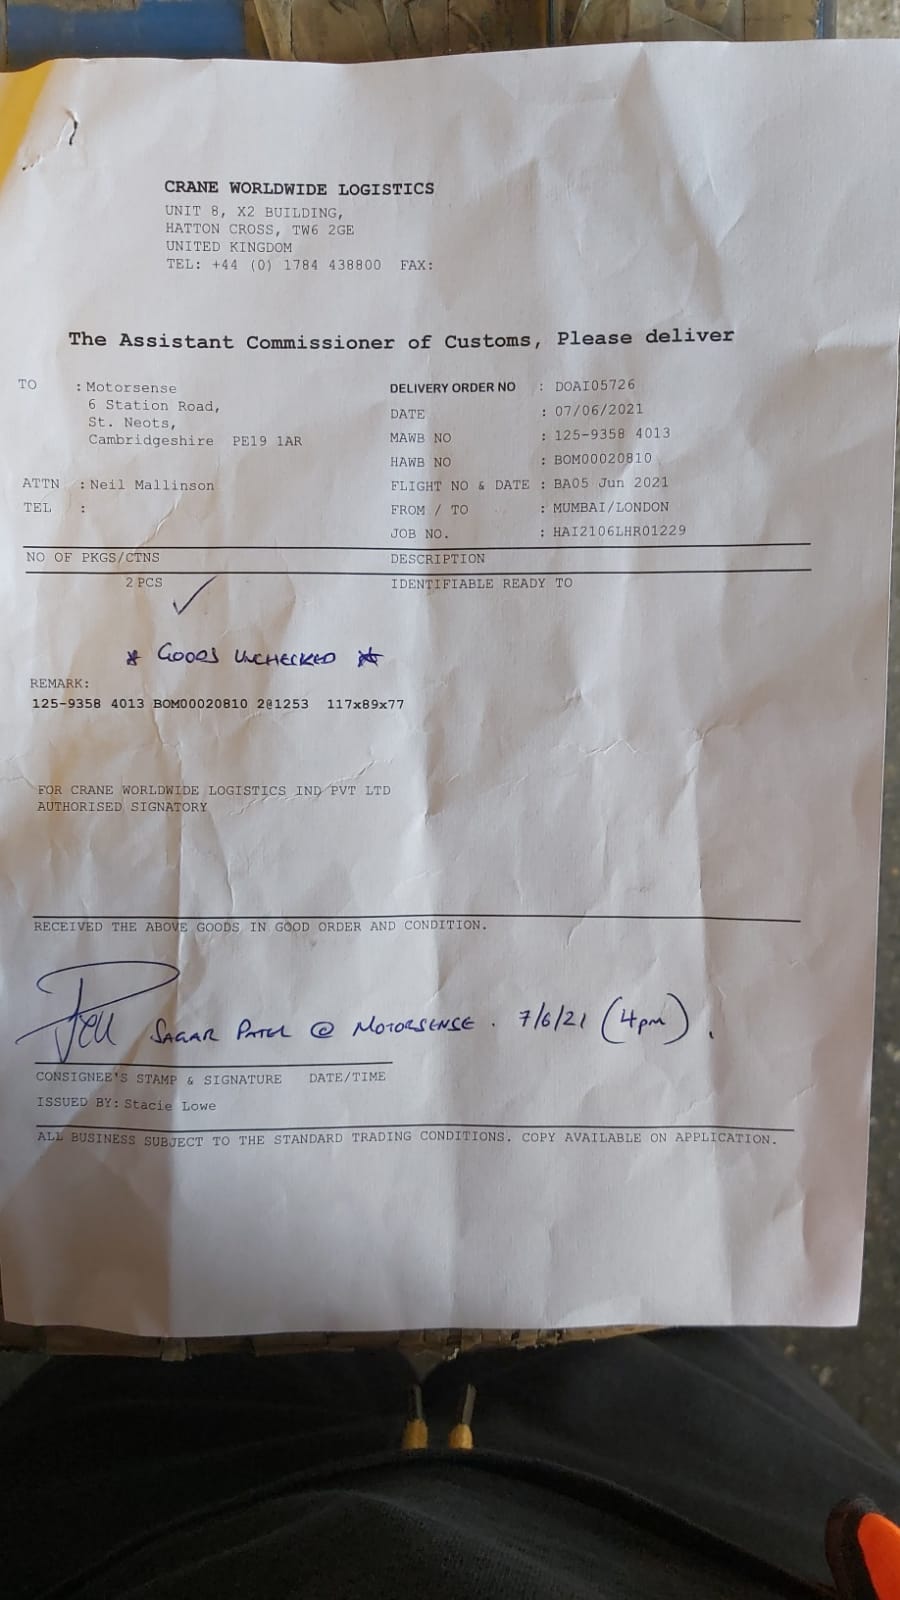 CRANE WORLDWIDE LOGISTICS
UNIT 8, X2 BUILDING,
HATTON CROSS, TW6 2GE
UNITED KINGDOM
TEL: +44 (0) 1784 438800 FAX:
The Assistant Commissioner of Customs, Please deliver
TO : Motorsense
6 Station Road,
St. Neots,
Cambridgeshire PE19 1AR
ATTN : Neil Mallinson
TEL :
DELIVERY ORDER NO : DOAI05726
DATE : 07/06/2021
MAWB NO : 125-9358 4013
HAWB NO : BOM00020810
FLIGHT NO & DATE : BA05 Jun 2021
FROM / TO : MUMBAI/LONDON
JOB NO. : HAI2106LHR01229
NO OF PKGS/CTNS DESCRIPTION
2 PCS IDENTIFIABLE READY TO
* GOODS UNCHECKED *
REMARK:
125-9358 4013 BOM00020810 2@1253 117x89x77
FOR CRANE WORLDWIDE LOGISTICS IND PVT LTD
AUTHORISED SIGNATORY
RECEIVED THE ABOVE GOODS IN GOOD ORDER AND CONDITION.
SAGAR PATEL @ MOTORSENSE. 7/6/21 (4pm).
CONSIGNEE'S STAMP & SIGNATURE DATE/TIME
ISSUED BY: Stacie Lowe
ALL BUSINESS SUBJECT TO THE STANDARD TRADING CONDITIONS. COPY AVAILABLE ON APPLICATION.